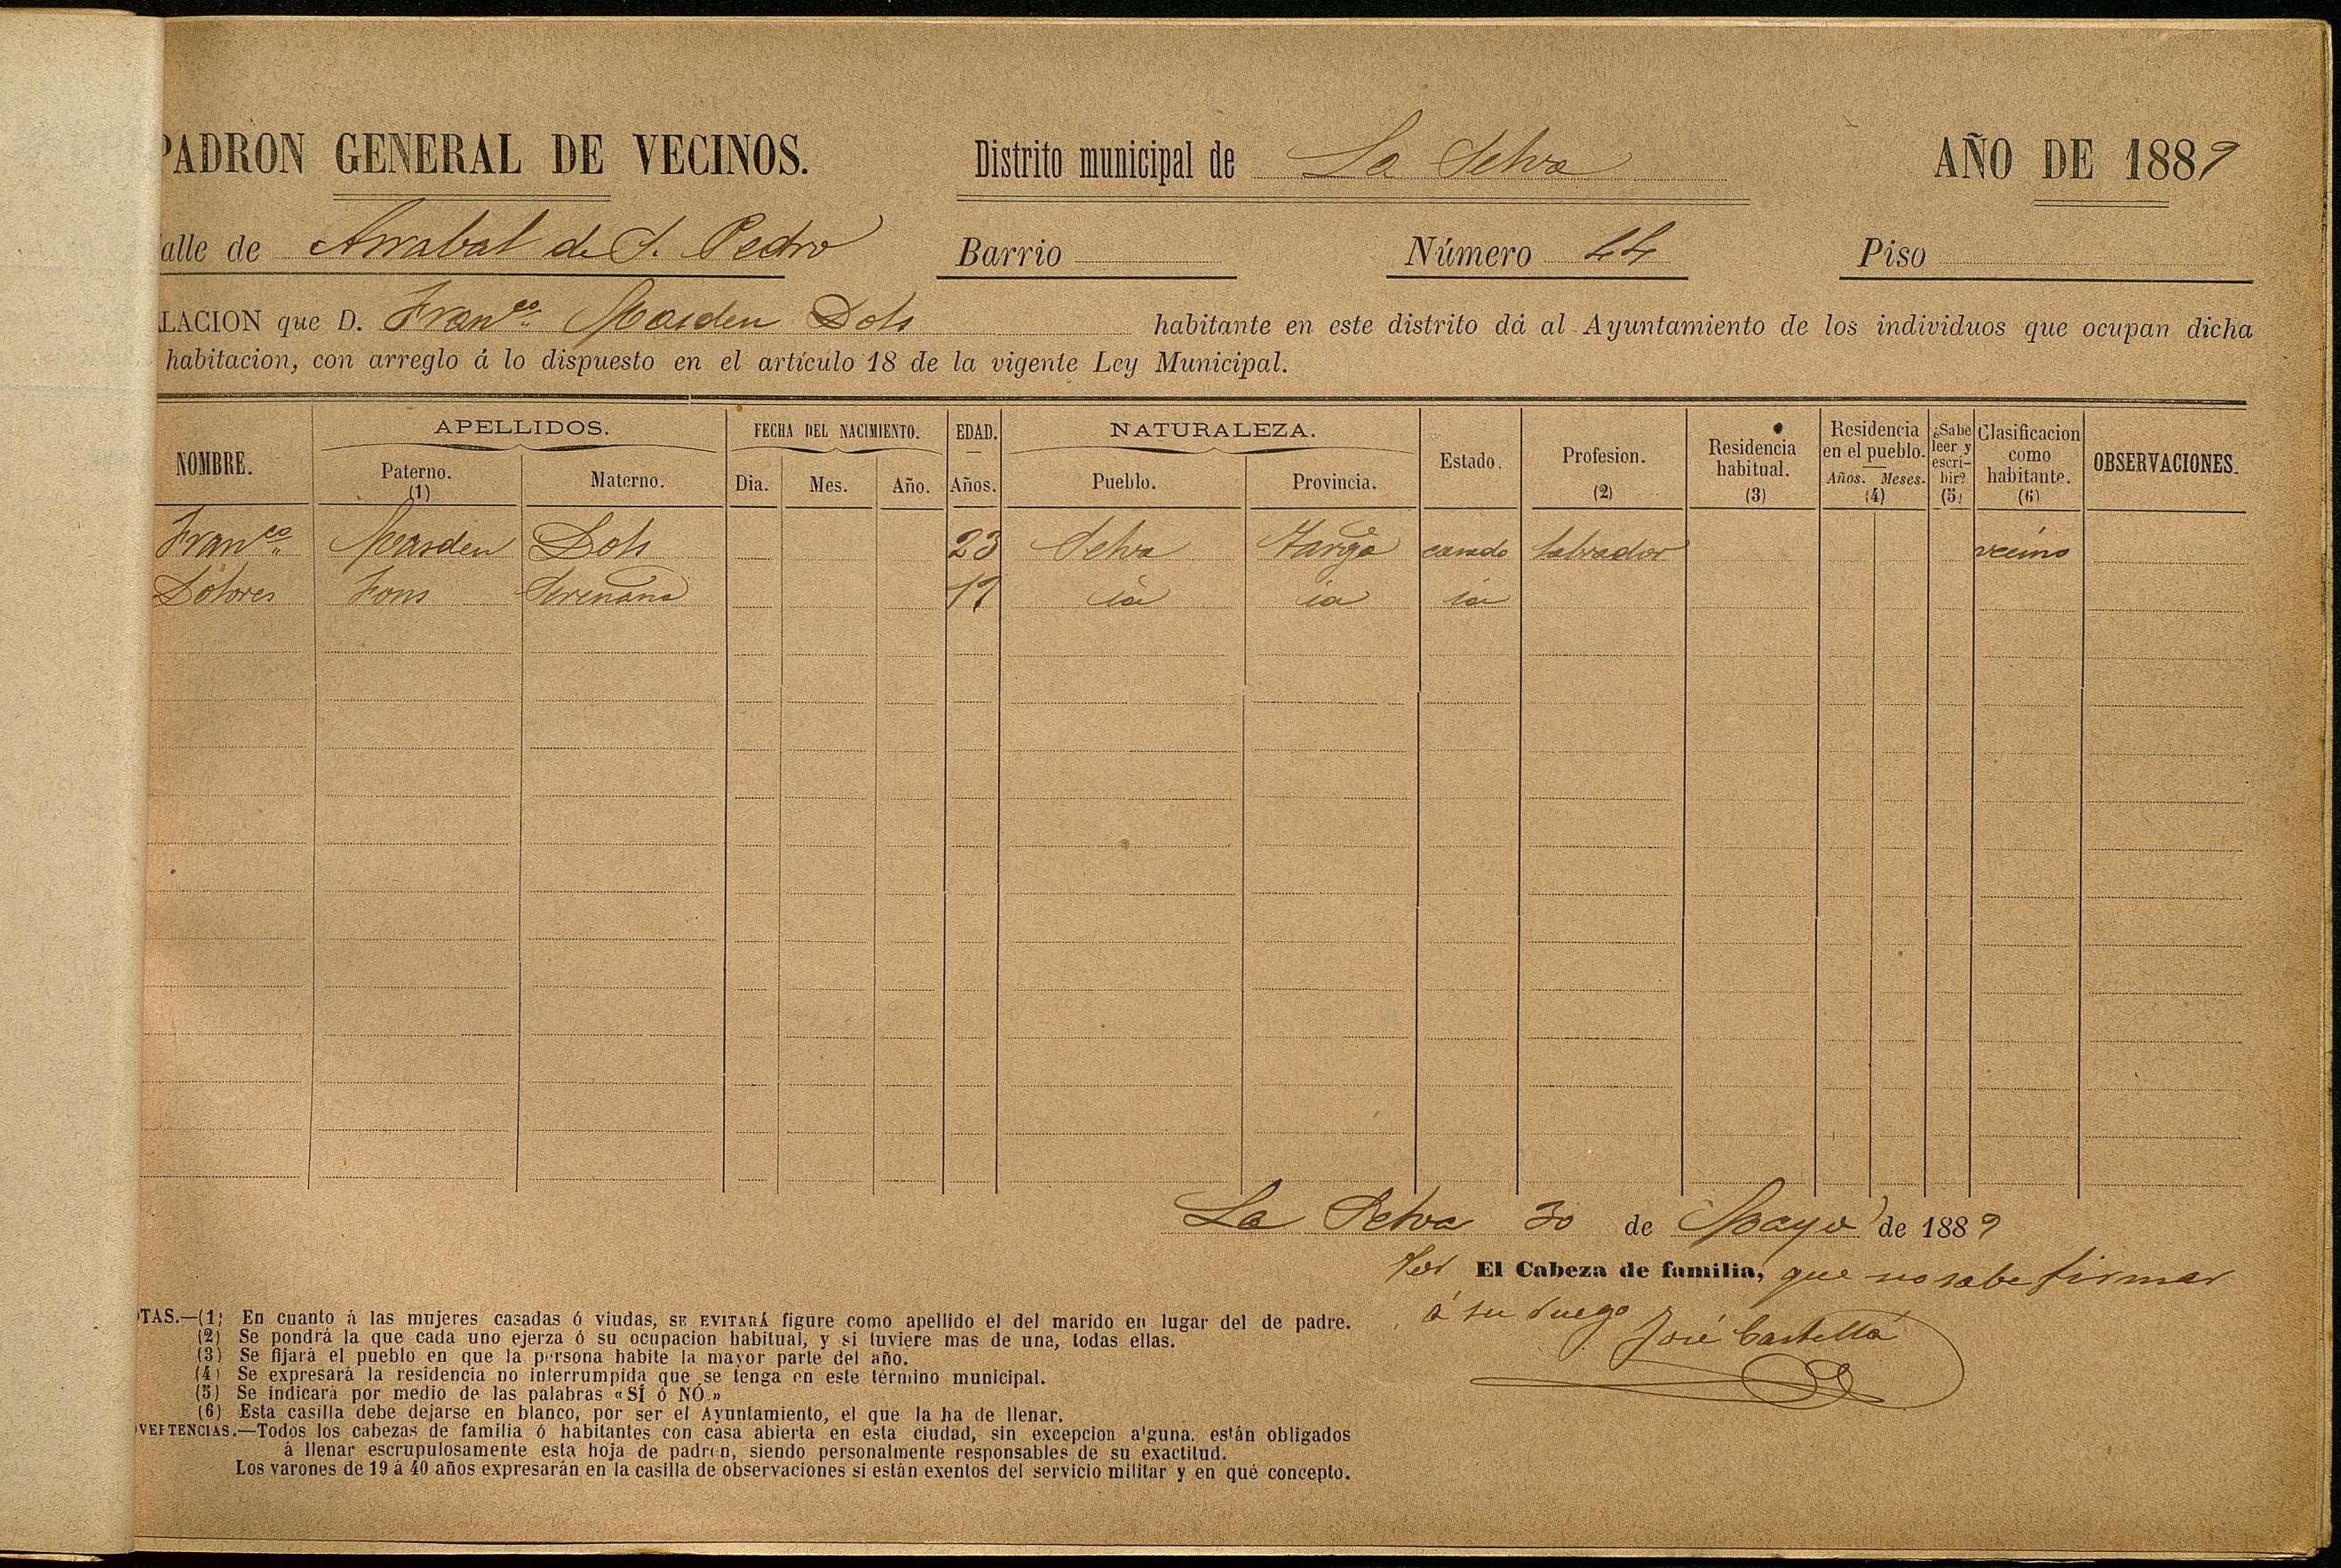 PADRON GENERAL DE VECINOS. Distrito municipal de La Selva AÑO DE 1889
alle de Arrabal de S. Pedro Barrio Número 44 Piso
LACION que D. Franco Masdeu Dols habitante en este distrito dá al Ayuntamiento de los individuos que ocupan dicha
habitacion, con arreglo á lo dispuesto en el artículo 18 de la vigente Ley Municipal.
NOMBRE. APELLIDOS. Paterno. (1) Materno. FECHA DEL NACIMIENTO. Dia. Mes. Año. EDAD. Años. NATURALEZA. Pueblo. Provincia. Estado. Profesion. (2) Residencia habitual. (3) Residencia en el pueblo. Años. Meses. (4) ¿Sabe leer y escribir? (5) Clasificacion como habitante. (6) OBSERVACIONES.
Franco Masdeu Dols 23 Selva Targa casado labrador vecino
Dolores Fons 19 id id id
La Selva 30 de Mayo de 1889
Por El Cabeza de familia, que no sabe firmar
á su ruego José Castellá
OTAS.—(1) En cuanto á las mujeres casadas ó viudas, SE EVITARÁ figure como apellido el del marido en lugar del de padre.
(2) Se pondrá la que cada uno ejerza ó su ocupacion habitual, y si tuviere mas de una, todas ellas.
(3) Se fijará el pueblo en que la persona habite la mayor parte del año.
(4) Se expresará la residencia no interrumpida que se tenga en este término municipal.
(5) Se indicará por medio de las palabras «SÍ ó NÓ.»
(6) Esta casilla debe dejarse en blanco, por ser el Ayuntamiento, el que la ha de llenar.
DVERTENCIAS.—Todos los cabezas de familia ó habitantes con casa abierta en esta ciudad, sin excepcion alguna. están obligados
á llenar escrupulosamente esta hoja de padron, siendo personalmente responsables de su exactitud.
Los varones de 19 á 40 años expresarán en la casilla de observaciones si están exentos del servicio militar y en qué concepto.